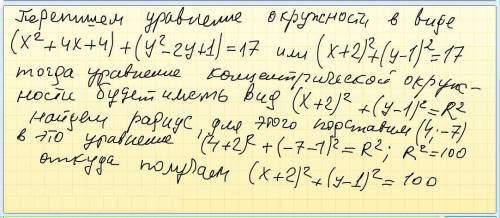 Перепишем уравнение окружности в виде
(x²+4x+4)+(y²-2y+1)=17 или (x+2)²+(y-1)²=17
тогда уравнение концентрической окруж-
ности будет иметь вид (x+2)²+(y-1)²=R²
найдем радиус, для этого подставим (4;-7)
в это уравнение (4+2)²+(-7-1)²=R²; R²=100
откуда получаем (x+2)²+(y-1)²=100